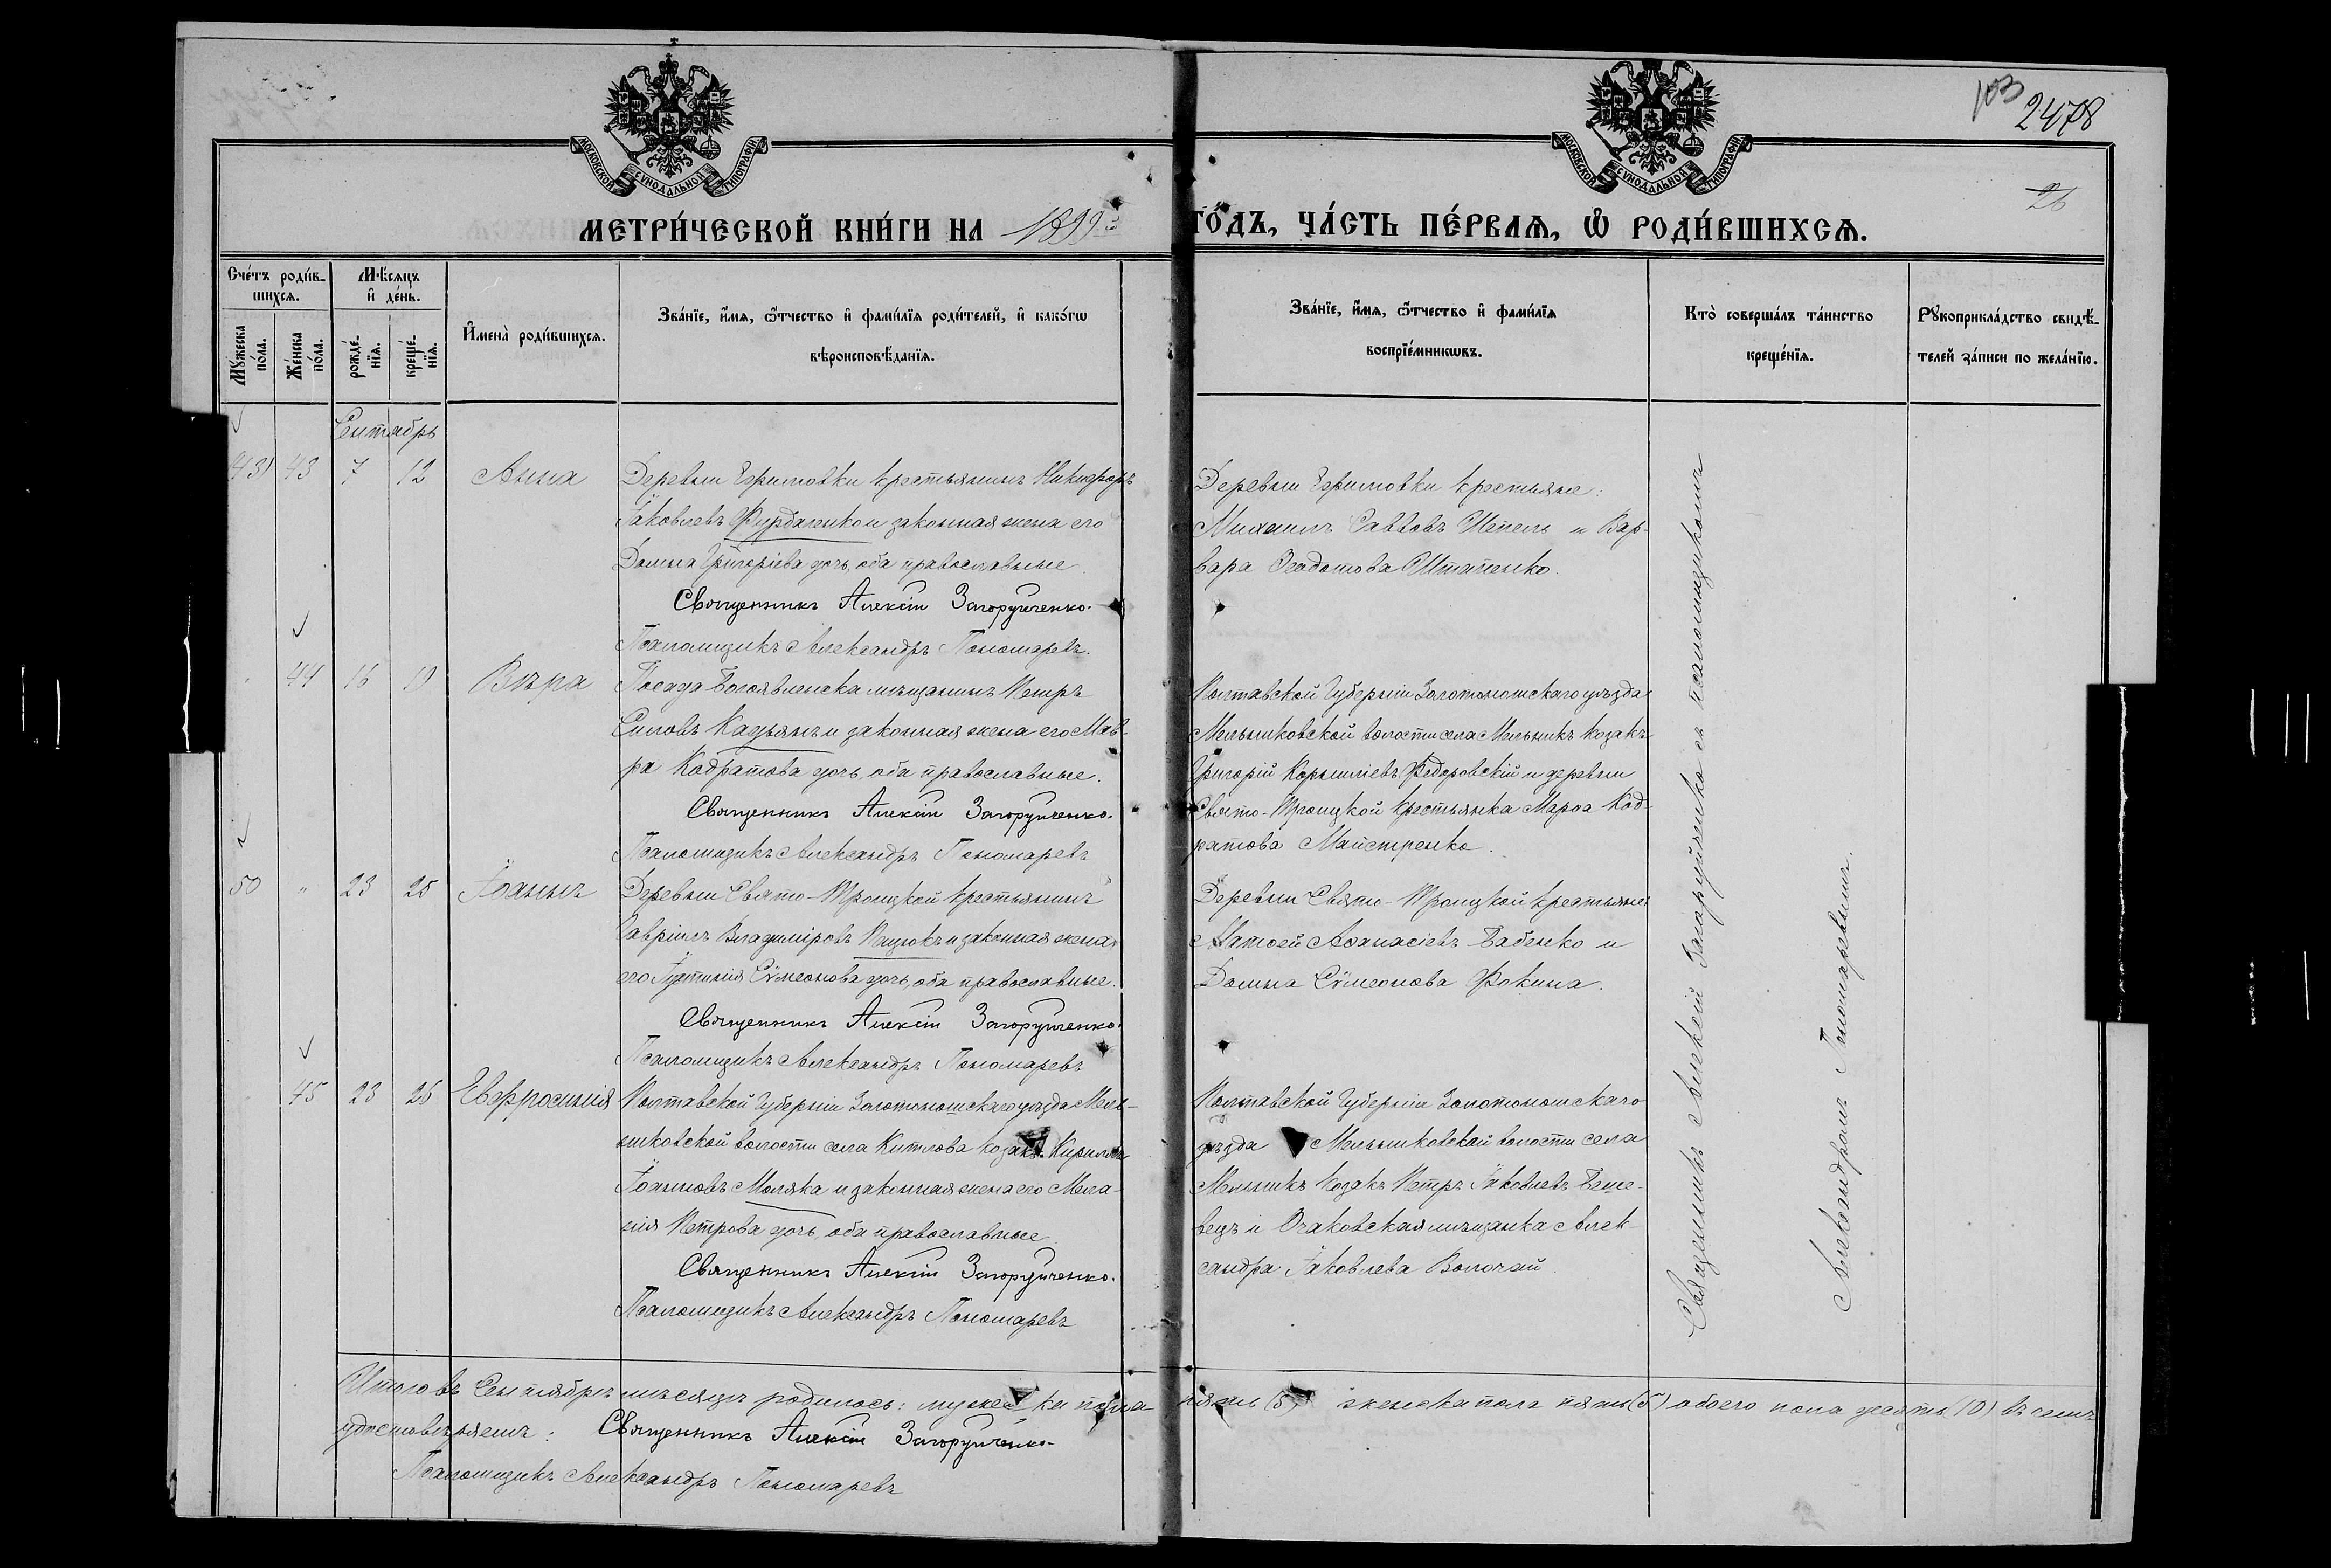 103
2478
26
МОСКОВСКОЙ СѴНОДАЛЬНОЙ ТИПОГРАФІИ
МОСКОВСКОЙ СѴНОДАЛЬНОЙ ТИПОГРАФІИ
МЕТРИ́ЧЕСКОЙ КНИ́ГИ НА 1899й ГО́ДЪ, ЧА́СТЬ ПЕ́РВАѦ, Ѡ РОДИ́ВШИХСѦ.
Сче́тъ роди́в-
шихсѧ.
Мꙋ́жеска по́ла.
Же́нска по́ла.
Мѣ́сѧцъ
и҆ де́нь.
рожде́-нїѧ.
креще́-нїѧ.
И҆мена̀ роди́вшихсѧ.
Зва́нїе, и҆́мѧ, ѻ҆́тчество и҆ фами́лїѧ роди́телей, и҆ како́гѡ
вѣроисповѣ́данїѧ.
Зва́нїе, и҆́мѧ, ѻ҆́тчество и҆ фами́лїѧ
воспрїе́мникѡвъ.
Кто̀ соверша́лъ та́инство
креще́нїѧ.
Рꙋкоприкла́дство свидѣ́-
телей за́писи по жела́нїю.
Сентябрь
43 7 12 Анна
Деревни Ефимовки крестьянинъ Никифоръ
Іаковлевъ Фурдаленко и законная жена его
Домна Григоріева дочь, оба православные.
Священникъ Алексій Загоруйченко.
Псаломщикъ Александръ Пономаревъ.
Деревни Ефимовки крестьяне:
Михаилъ Саввовъ Чепель и Вар-
вара Ѳеодотова Штапенко.
44 16 19 Вѣра
Посада Богоявленска мѣщанинъ Петръ
Силовъ Кадьянъ и законная жена его Мав-
ра Кодратова дочь, оба православные.
Священникъ Алексій Загоруйченко.
Псаломщикъ Александръ Пономаревъ
Полтавской Губерніи Золотоношскаго уѣзда
Мельниковской волости села Мельникъ козакъ
Григорій Корниліевъ Федоровскій и деревни
Свято-Троицкой крестьянка Марѳа Код-
ратова Майстренко.
50 " 23 25 Іоаннъ
Деревни Свято-Троицкой крестьянинъ
Гавріилъ Владиміровъ Пацюкъ и законная жена
его Іустинія Сѵмеонова дочь, оба православные.
Священникъ Алексій Загоруйченко.
Псаломщикъ Александръ Пономаревъ
Деревни Свято-Троицкой крестьяне:
Матѳей Аѳанасіевъ Бабенко и
Домна Сѵмеонова Фокина.
45 23 26 Евфросинія
Полтавской Губерніи Золотоношскаго уѣзда Мель-
никовской волости села Китлова козакъ Кириллъ
Іоанновъ Моляка и законная жена его Мела-
нія Петрова дочь, оба православные.
Священникъ Алексій Загоруйченко.
Псаломщикъ Александръ Пономаревъ
Полтавской Губерніи Золотоношскаго
уѣзда Мельниковской волости села
Мельникъ козакъ Петръ Іаковлевъ Беше-
вецъ и Очаковская мѣщанка Алек
сандра Іаковлева Волочай.
Священникъ Алексій Загоруйченко съ псаломщикомъ
Александромъ Пономаревымъ.
Итого въ Сентябрѣ мѣсяцѣ родилось: мужеска пола пять (5) женска пола пять (5) обоего пола десять (10) въ чемъ
удостовѣряемъ: Священникъ Алексій Загоруйченко.
Псаломщикъ Александръ Пономаревъ